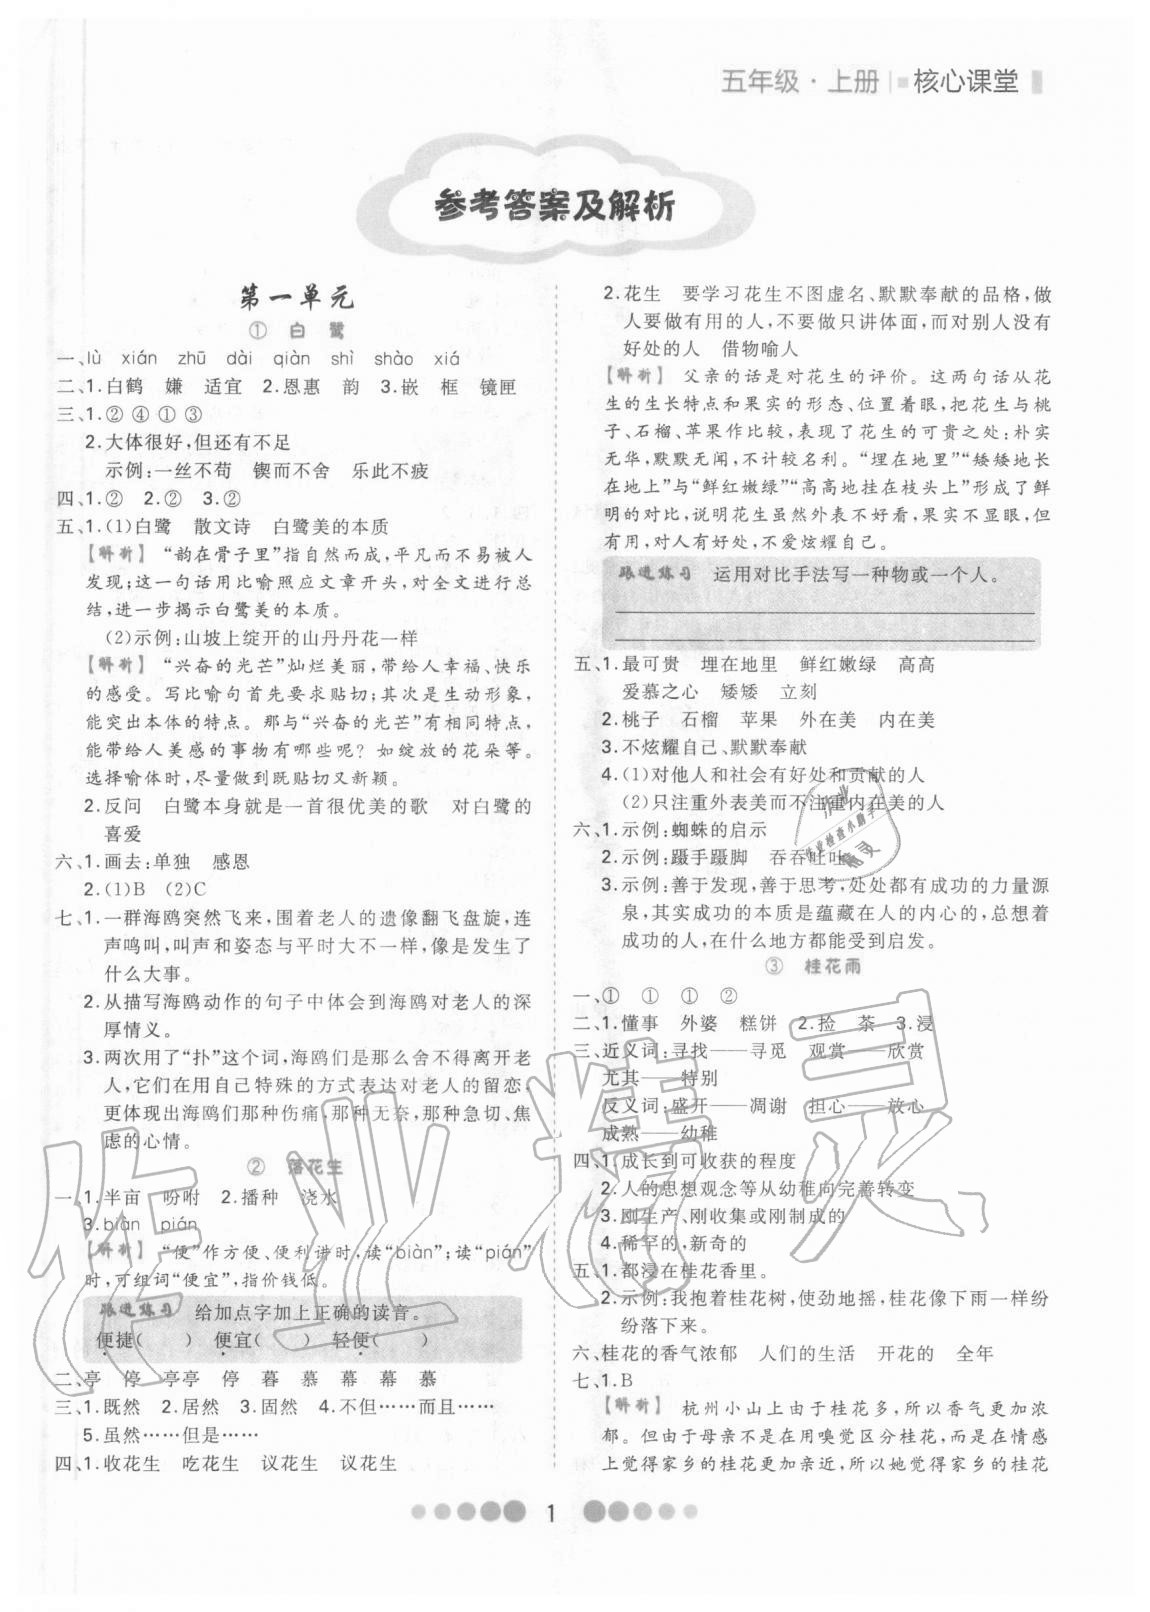 五年级·上册 核心课堂
参考答案及解析
第一单元
① 白鹭
一、lù xián zhū dài qiàn shì shào xiá
二、1.白鹤 嫌 适宜 2.恩惠 韵 3.嵌 框 镜匣
三、1.② ④ ① ③
2.大体很好,但还有不足
示例:一丝不苟 锲而不舍 乐此不疲
四、1.② 2.② 3.②
五、1.(1)白鹭 散文诗 白鹭美的本质
【解析】 “韵在骨子里”指自然而成,平凡而不易被人
发现;这一句话用比喻照应文章开头,对全文进行总
结,进一步揭示白鹭美的本质。
(2)示例:山坡上绽开的山丹丹花一样
【解析】 “兴奋的光芒”灿烂美丽,带给人幸福、快乐
的感受。写比喻句首先要求贴切;其次是生动形象,
能突出本体的特点。那与“兴奋的光芒”有相同特点,
能带给人美感的事物有哪些呢? 如绽放的花朵等。
选择喻体时,尽量做到既贴切又新颖。
2.反问 白鹭本身就是一首很优美的歌 对白鹭的
喜爱
六、1.画去:单独 感恩
2.(1)B (2)C
七、1.一群海鸥突然飞来,围着老人的遗像翻飞盘旋,连
声鸣叫,叫声和姿态与平时大不一样,像是发生了
什么大事。
2.从描写海鸥动作的句子中体会到海鸥对老人的深
厚情义。
3.两次用了“扑”这个词,海鸥们是那么舍不得离开老
人,它们在用自己特殊的方式表达对老人的留恋,
更体现出海鸥们那种伤痛,那种无奈,那种急切、焦
虑的心情。
② 落花生
一、1.半亩 吩咐 2.播种 浇水
3.biàn pián
【解析】 “便”作方便、便利讲时,读“biàn”;读“pián”
时,可组词“便宜”,指价钱低。
跟进练习 给加点字加上正确的读音。
便捷( ) 便宜( ) 轻便( )
二、亭 停 亭亭 停 暮 慕 幕 幕 慕
三、1.既然 2.居然 3.固然 4.不但……而且……
5.虽然……但是……
四、1.收花生 吃花生 议花生 议花生
2.花生 要学习花生不图虚名、默默奉献的品格,做
人要做有用的人,不要做只讲体面,而对别人没有
好处的人 借物喻人
【解析】 父亲的话是对花生的评价。这两句话从花
生的生长特点和果实的形态、位置着眼,把花生与桃
子、石榴、苹果作比较,表现了花生的可贵之处:朴实
无华,默默无闻,不计较名利。“埋在地里”“矮矮地长
在地上”与“鲜红嫩绿”“高高地挂在枝头上”形成了鲜
明的对比,说明花生虽然外表不好看,果实不显眼,但
有用,对人有好处,不爱炫耀自己。
跟进练习 运用对比手法写一种物或一个人。
五、1.最可贵 埋在地里 鲜红嫩绿 高高
爱慕之心 矮矮 立刻
2.桃子 石榴 苹果 外在美 内在美
3.不炫耀自己、默默奉献
4.(1)对他人和社会有好处和贡献的人
(2)只注重外表美而不注重内在美的人
六、1.示例:蜘蛛的启示
2.示例:蹑手蹑脚 吞吞吐吐
3.示例:善于发现,善于思考,处处都有成功的力量源
泉,其实成功的本质是蕴藏在人的内心的,总想着
成功的人,在什么地方都能受到启发。
③ 桂花雨
一、① ① ① ②
二、1.懂事 外婆 糕饼 2.捡 茶 3.浸
三、近义词:寻找——寻觅 观赏——欣赏
尤其——特别
反义词:盛开——凋谢 担心——放心
成熟——幼稚
四、1.成长到可收获的程度
2.人的思想观念等从幼稚向完善转变
3.刚生产、刚收集或刚制成的
4.稀罕的,新奇的
五、1.都浸在桂花香里。
2.示例:我抱着桂花树,使劲地摇,桂花像下雨一样纷
纷落下来。
六、桂花的香气浓郁 人们的生活 开花的 全年
七、1.B
【解析】 杭州小山上由于桂花多,所以香气更加浓
郁。但由于母亲不是在用嗅觉区分桂花,而是在情感
上觉得家乡的桂花更加亲近,所以她觉得家乡的桂花
1
作业精灵
作业检查小助手